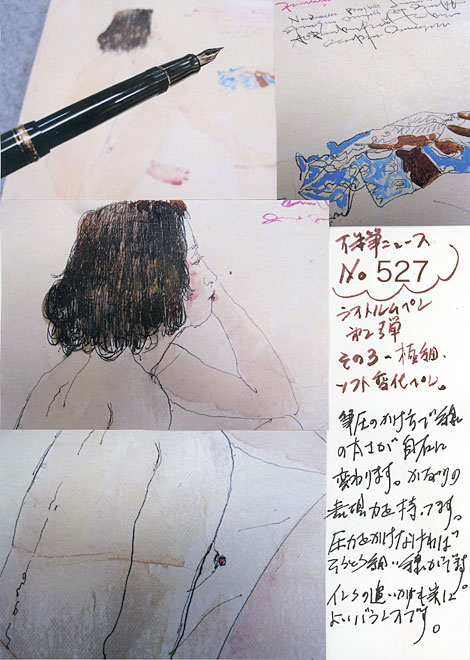 万年筆ニュース
No. 527
ラストルムペン
第2弾
その3 - 極細.
ソフト変化ペン。
筆圧のかけ方で線
の太さが自在に
変わります。かなりの
表現力を持ってます。
圧力をかけなければ
そうとう細い線がでます。
インクの追いかけも実に
よいバランスです。